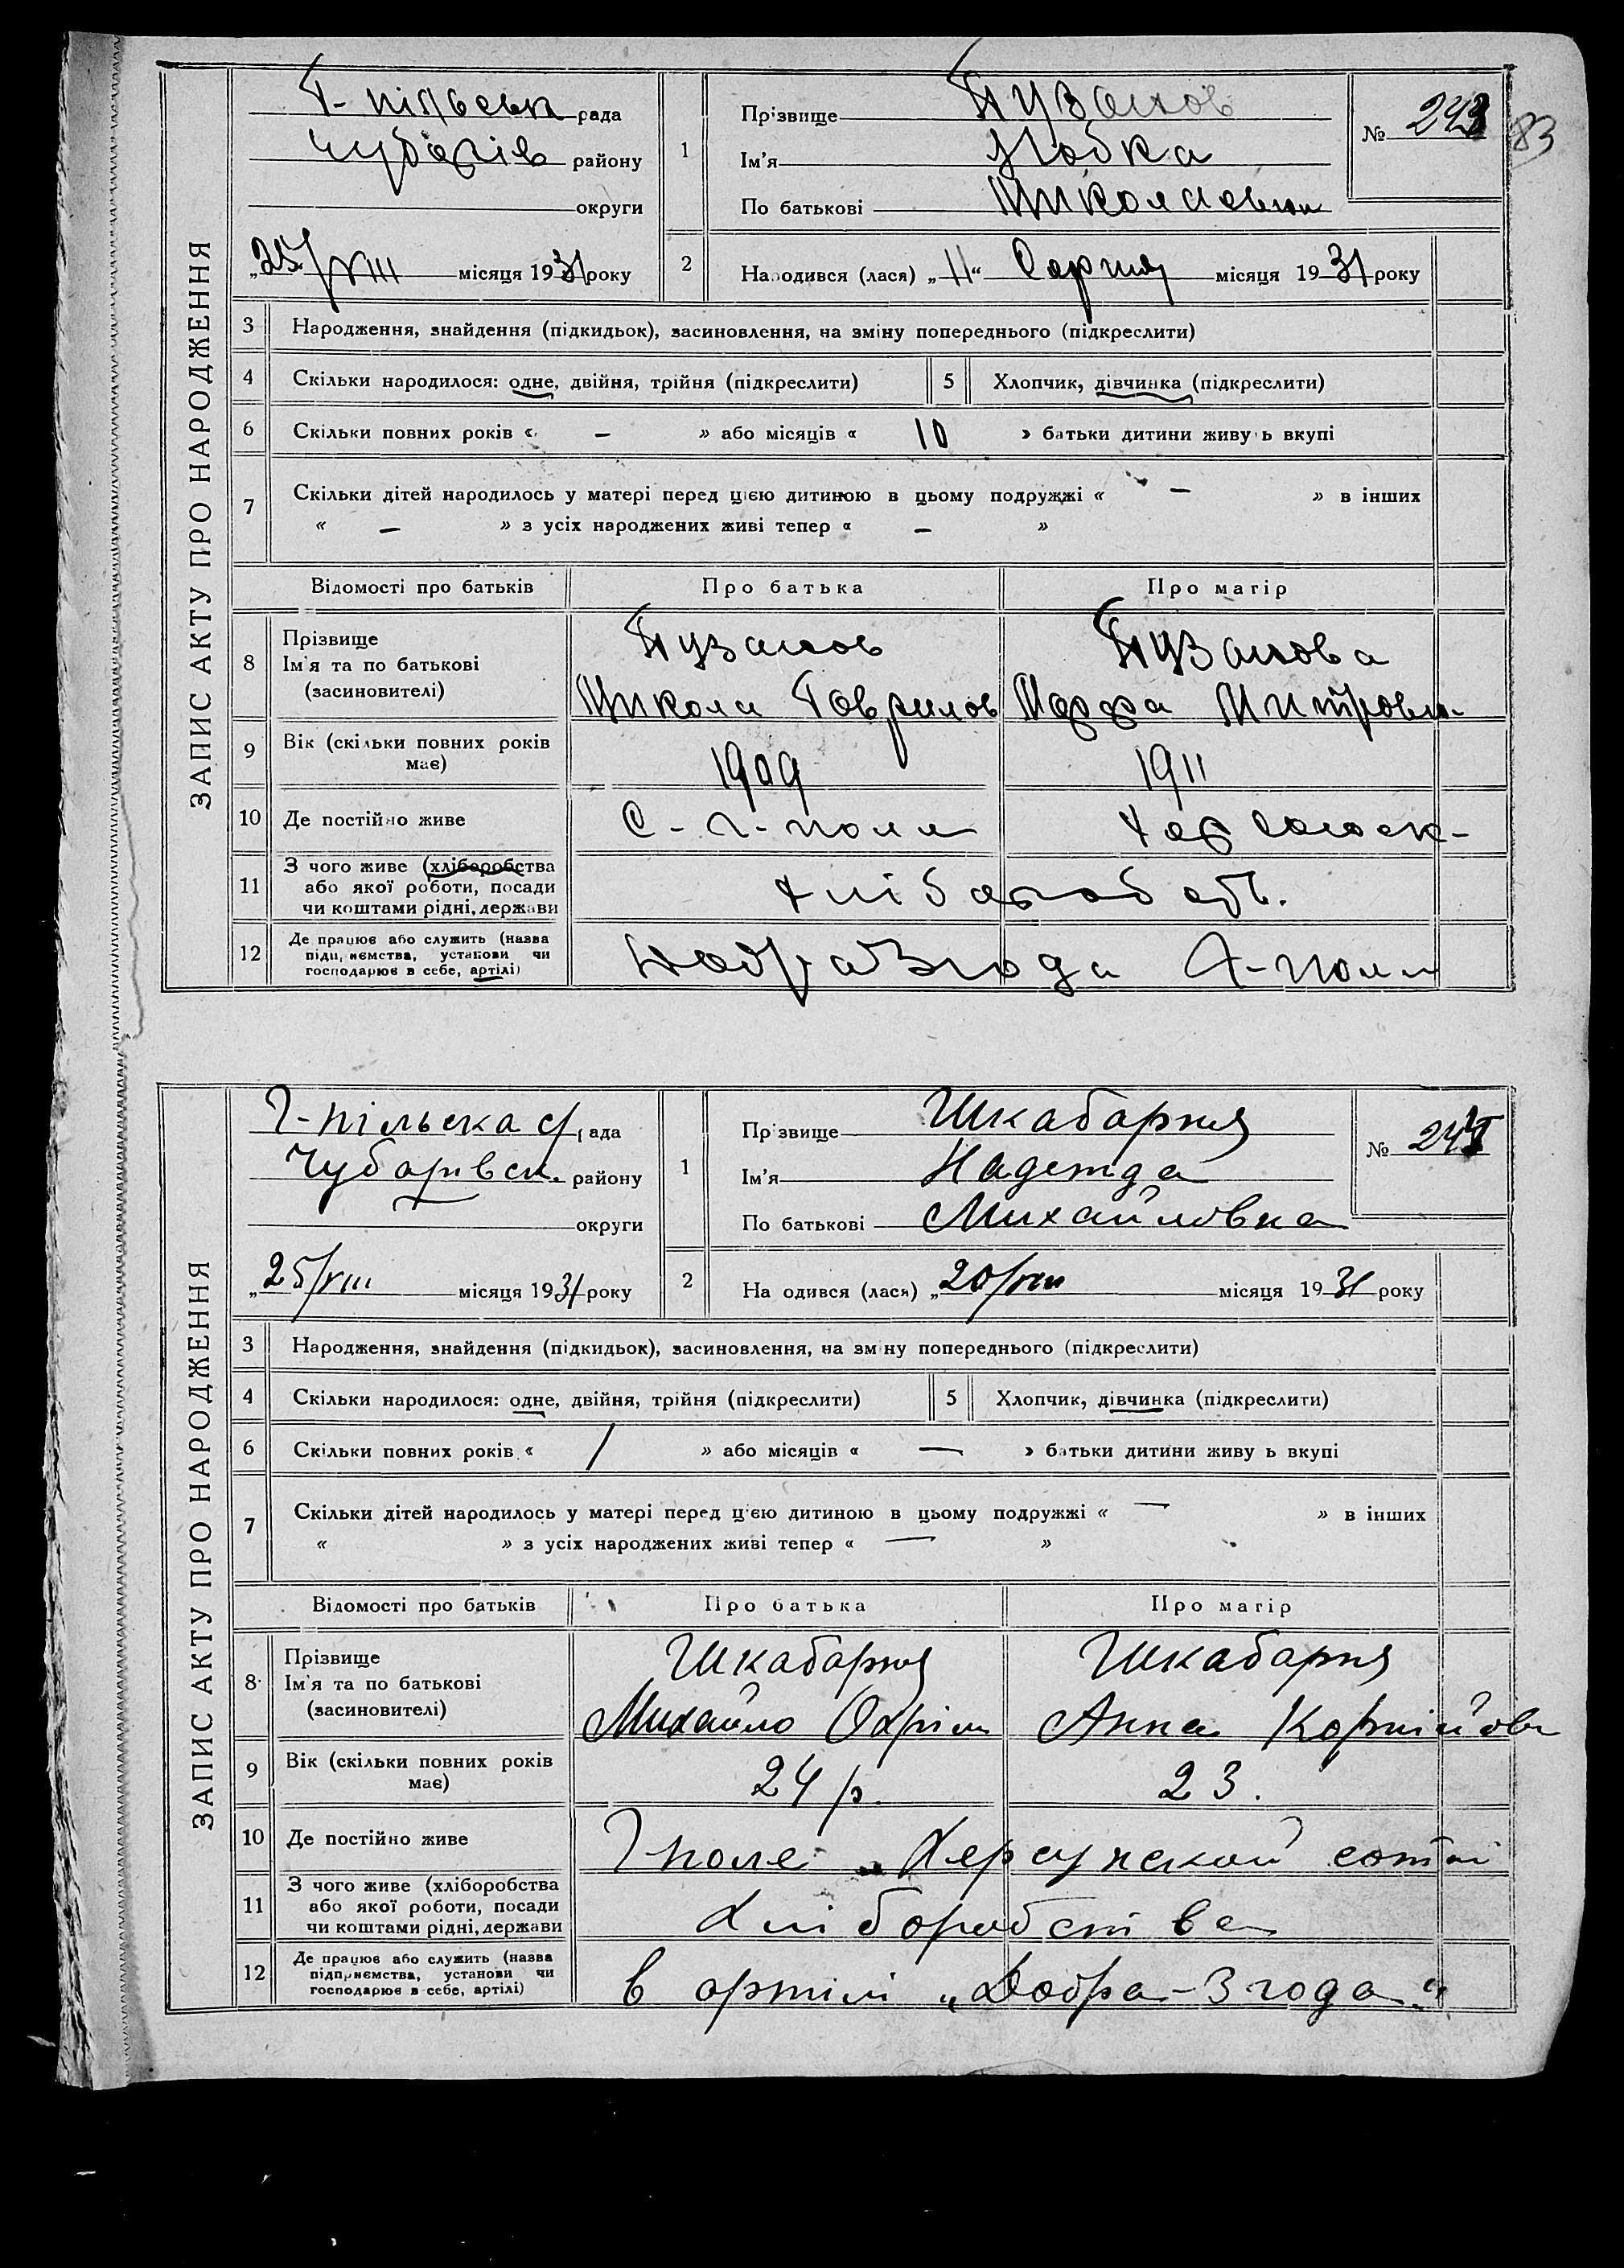 ЗАПИС АКТУ ПРО НАРОДЖЕННЯ
Г-пільськ рада
Чубарів району
округи
„25/VIII місяця 1931 року
1
Прізвище Пузанов
Ім'я Любка
По батькові Миколаевн
№ 243
83
2
Народився (лася) „11“ Серпня місяця 1931 року
3 Народження, знайдення (підкидьок), засиновлення, на зміну попереднього (підкреслити)
4 Скільки народилося: одне, двійня, трійня (підкреслити)
5 Хлопчик, дівчинка (підкреслити)
6 Скільки повних років « – » або місяців « 10 » батьки дитини живуь вкупі
7 Скільки дітей народилось у матері перед цією дитиною в цьому подружжі « – » в інших
« – » з усіх народжених живі тепер « – »
Відомості про батьків Про батька Про матір
8 Прізвище
Ім'я та по батькові
(засиновителі)
Пузанов
Микола Гаврилов
Пузанова
Марфа Митровн-
9 Вік (скільки повних років
має)
1909 1911
10 Де постійно живе
С-Г-поля
11 З чого живе (хліборобства
або якої роботи, посади
чи коштами рідні, держави
12 Де працює або служить (назва
підприємства, установи чи
господарює в себе, артілі)
Добра Згода Г-поля
ЗАПИС АКТУ ПРО НАРОДЖЕННЯ
Г-пільска с/рада
Чубарівск. району
округи
„25/VIII місяця 1931 року
1
Прізвище Шкабарня
Ім'я Надежда
По батькові Михайловна
№ 244
2
На одився (лася) „20/VIII місяця 1931 року
3 Народження, знайдення (підкидьок), засиновлення, на зміну попереднього (підкреслити)
4 Скільки народилося: одне, двійня, трійня (підкреслити)
5 Хлопчик, дівчинка (підкреслити)
6 Скільки повних років « / » або місяців « — » батьки дитини живу ь вкупі
7 Скільки дітей народилось у матері перед цією дитиною в цьому подружжі « — » в інших
« » з усіх народжених живі тепер « — »
Відомості про батьків Про батька Про матір
8 Прізвище
Ім'я та по батькові
(засиновителі)
Шкабарня
Михайло Охрім
Шкабарня
Анна Корнійовн
9 Вік (скільки повних років
має)
24 р. 23.
10 Де постійно живе
Гполе Херсунской сотні
11 З чого живе (хліборобства
або якої роботи, посади
чи коштами рідні, держави
хліборобства
12 Де працює або служить (назва
підприємства, установи чи
господарює в себе, артілі)
в артілі „Добра-Згода“